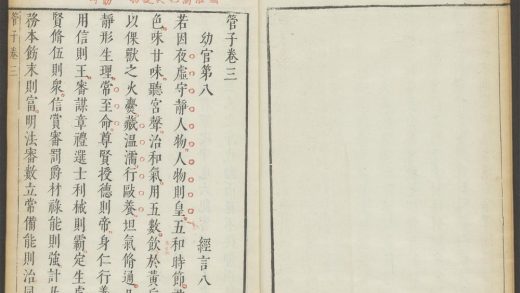 管子卷三
幼官第八 經言八
若因夜虛守靜人物人物則皇五和時節
色味甘味聽宮聲治和氣用五數飲於黃后
以倮獸之火爨藏溫濡行歐養坦氣脩通
靜形生理常至命尊賢授德則帝身仁行義
用信則王審謀章禮選士利械則霸定生處
賢脩伍則眾信賞審罰爵材祿能則強計凡
務本飭末則富明法審數立常備能則治同
管子卷三